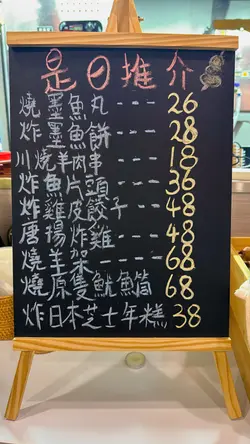 是日推介
燒墨魚丸 --- 26
炸墨魚餅 --- 28
川燒羊肉串 --- 18
炸魚片頭 --- 36
炸雞皮餃子 -- 48
唐揚炸雞 --- 48
燒羊架 ---- 68
燒原隻魷魚筒 68
炸日本芝士年糕 38